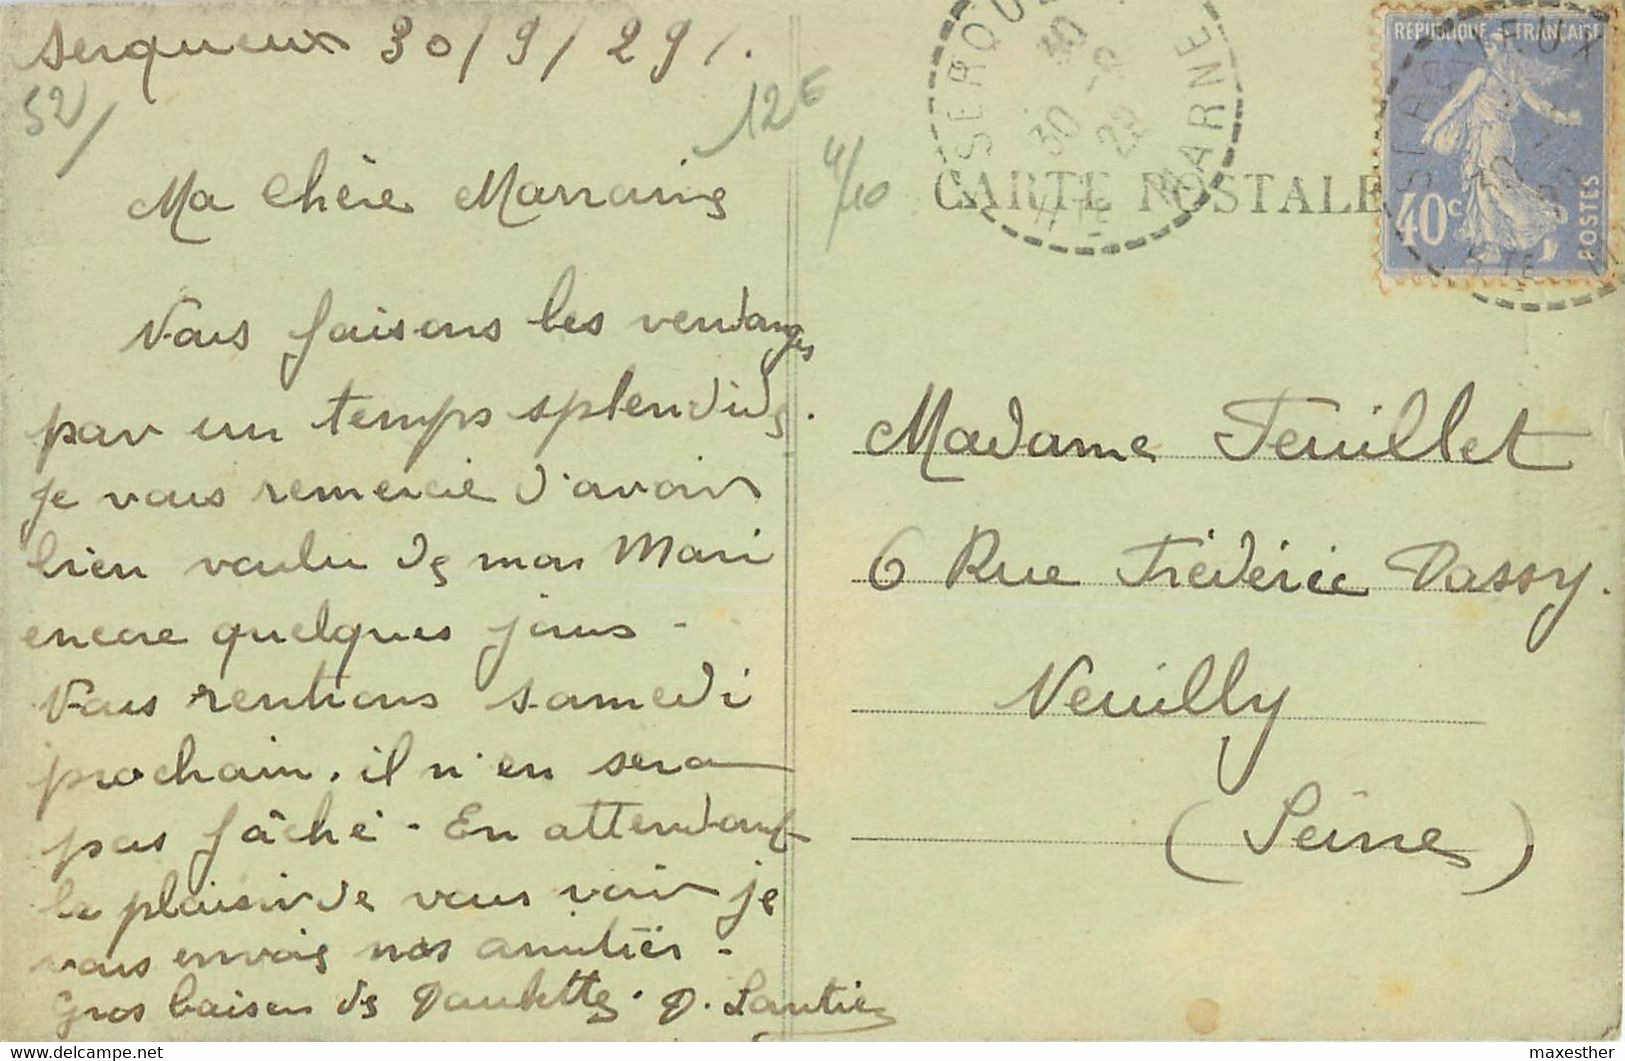 Serqueux 30/9/29/.
52/
12E
4/10
Ma Chère Marraine
Nous faisons les vendanges
par un temps splendide.
Je vous remercie d'avoir
bien voulu de mon Mari
encore quelques jours -
Nous rentrons samedi
prochain. il n'en sera
pas fâché - En attendant
le plaisir de vous voir je
vous envoie nos amitiés -
Gros baisers de Paulette. P. Lautier
CARTE POSTALE
SERQUEUX
30 -9
29
MARNE
REPUBLIQUE FRANÇAISE
40c
POSTES
Madame Feuillet
6 Rue Frédéric Passy.
Neuilly
(Seine)
maxesther